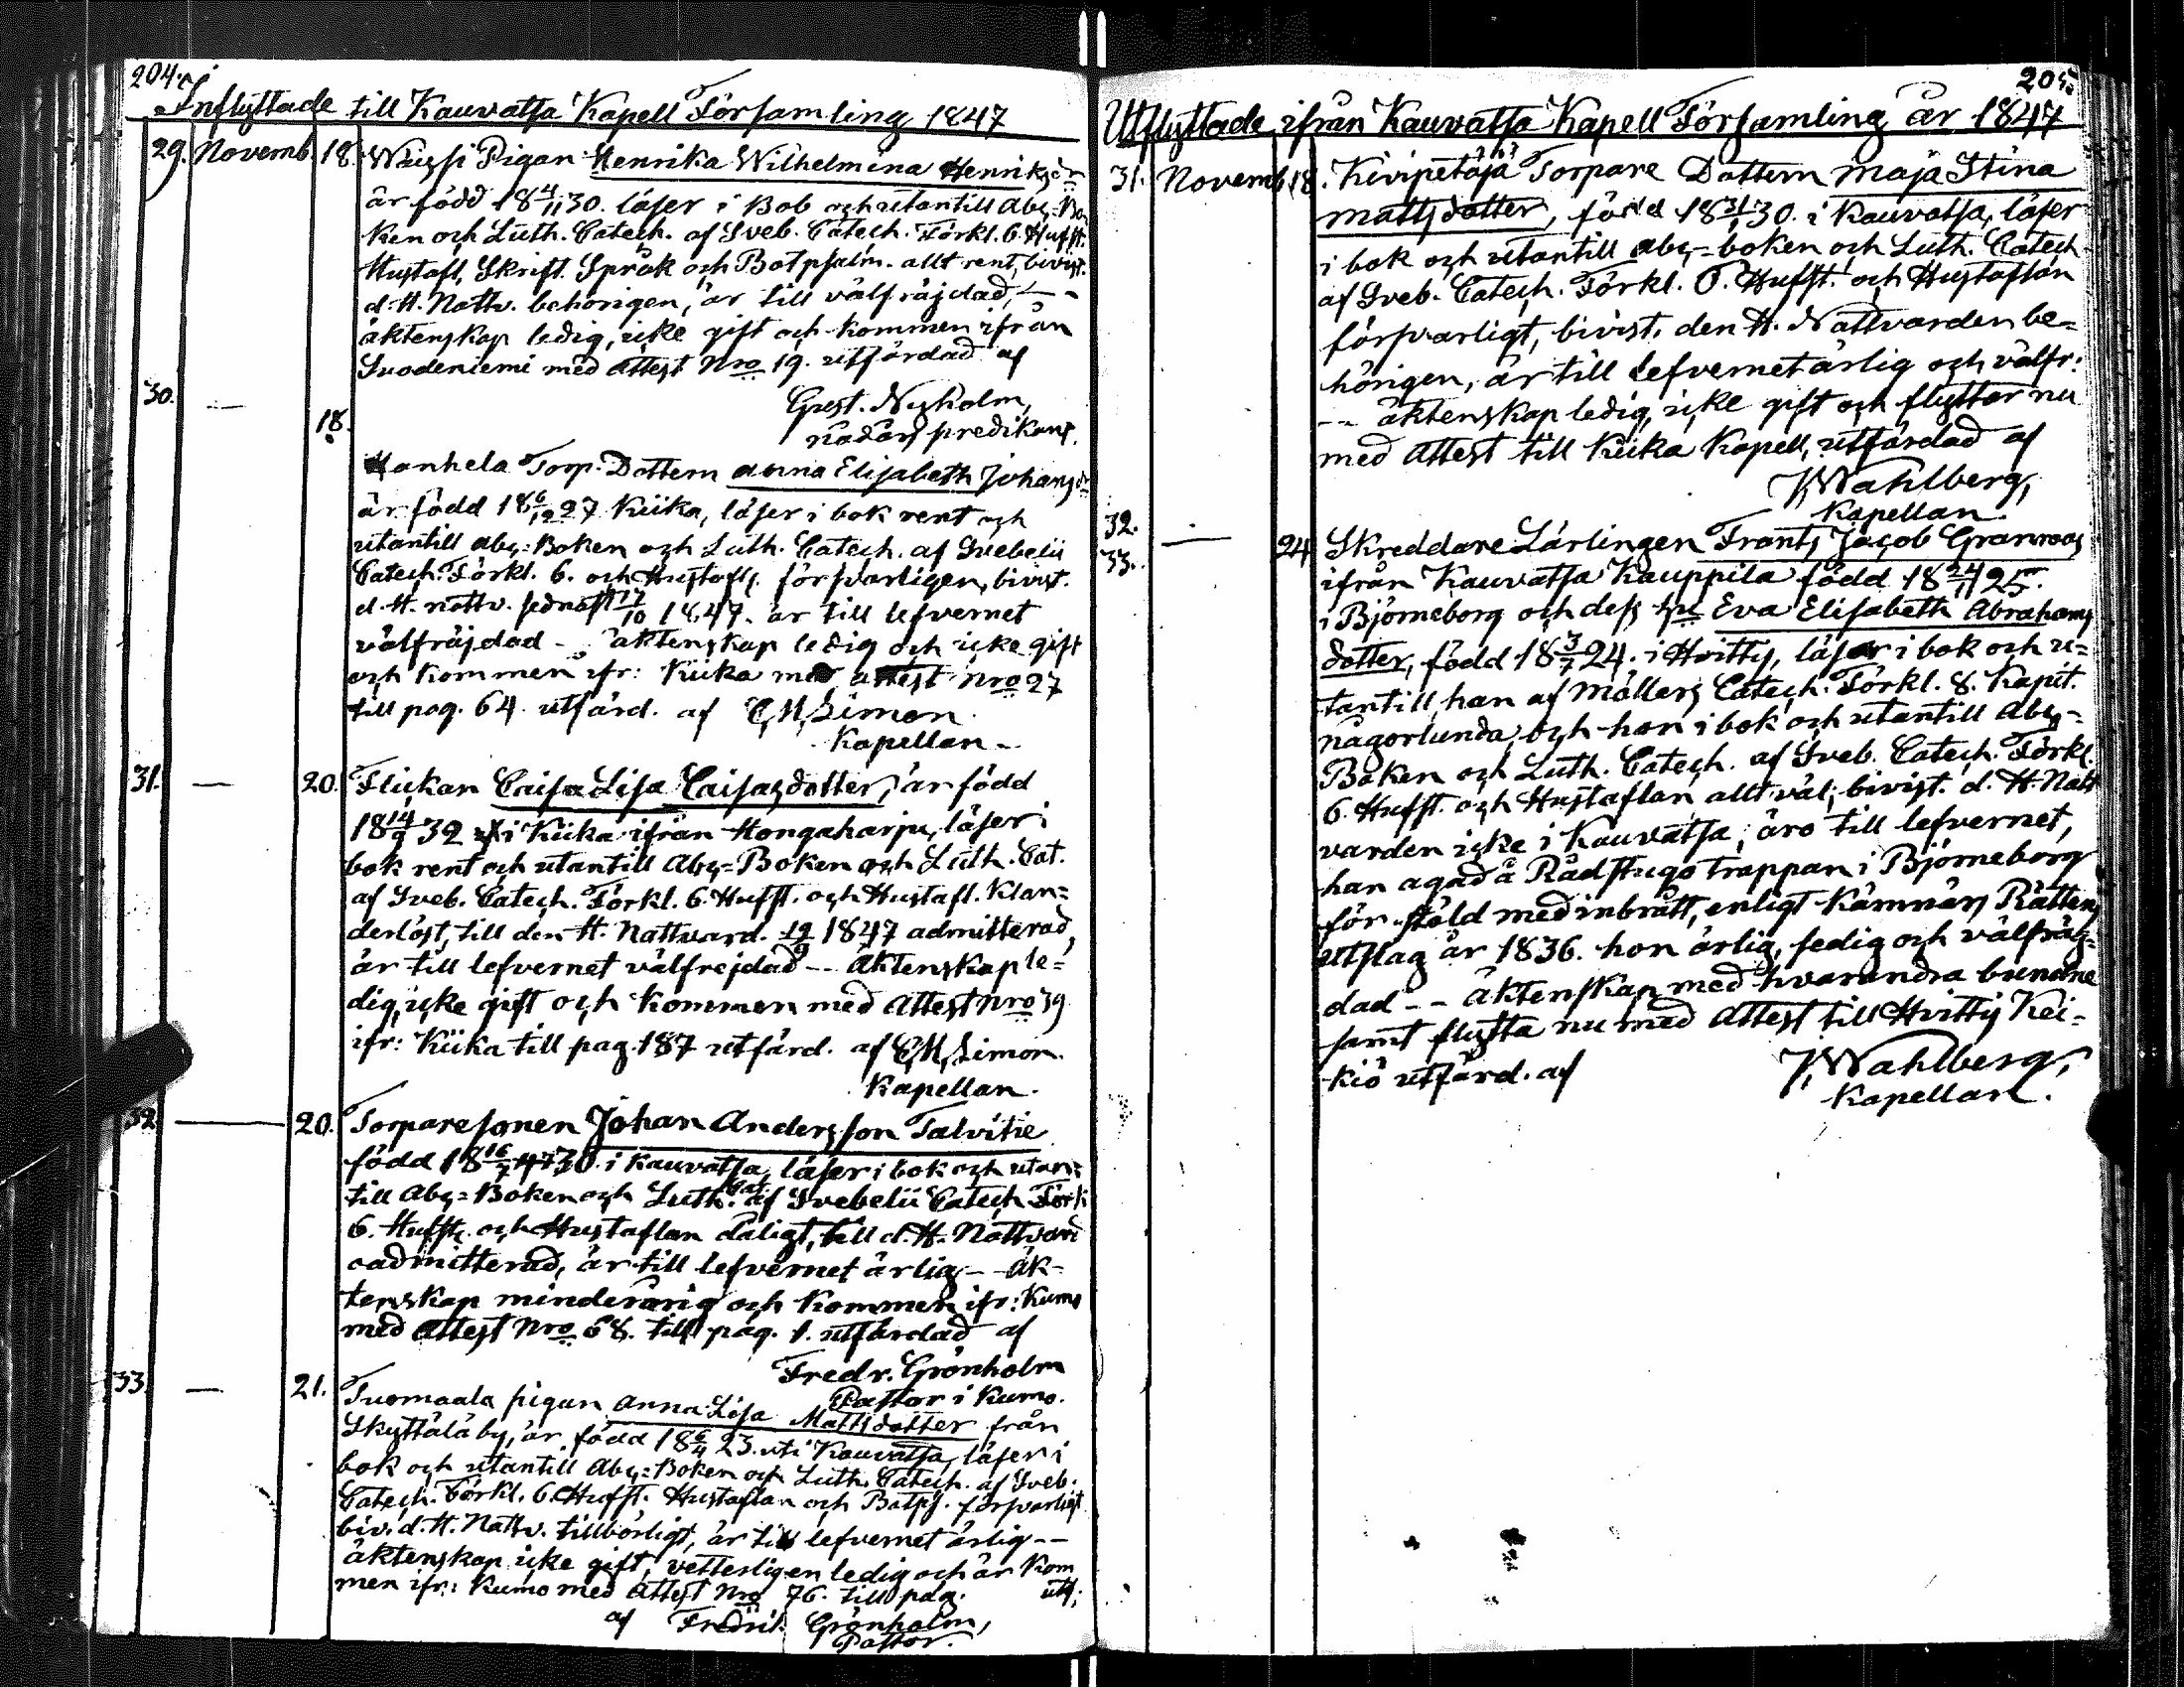 204.
Inflyttade till Kauvatsa Kapell Församling 1847
29. Novemb. 18. Pigan Henrika Wilhelmina Henriksdr
är född 18 4/11 30. läser i Bok och utantill Abc-Bo
ken och Luth. Catech. af Sveb. Catech. Förkl. 6. Hufst.
Hustafl. Skrift. Språk och Botpsalm. allt rent, bivist.
d. H. Nattv. behörigen, är till välfräjdad, --
äktenskap ledig, icke gift och kommen ifrån
Suodeniemi med Attest Nro 19. utfärdad af
Gust. Nyholm,
nådårs predikant.
30. — 18.
Hanhela Torp. Dottern Anna Elisabeth Johansdr
är född 18 6/12 27 Kiika, läser i bok rent och
utantill Abc-Boken och Luth. Catech. af Svebelii
Catech. Förkl. 6. och Hustafl. försvarligen, bivist.
d. H. nattv. sednast 17/10 1847. är till lefvernet
välfräjdad -- äktenskap ledig och icke gift
och kommen ifr: Kiika med attest Nro 27
till pag. 64. utfärd. af C M Simon
Kapellan.
31. — 20. Flickan Caisa Lisa Caisasdotter, är född
18 14/9 32 i Kiika ifrån Hongaharju, läser i
bok rent och utantill Abc-Boken och Luth. Cat.
af Sveb. Catech. Förkl. 6. Hufst. och Hustafl. Klan-
derlöst, till den H. Nattvard. 19/9 1847 admitterad,
är till lefvernet välfrejdad -- Äktenskap le-
dig, icke gift och kommen med Attest Nro 39
ifr: Kiika till pag. 187 utfärd. af C M Simon.
Kapellan.
32. — 20. Torparesonen Johan Andersson Talvitie
född 18 16/7 30. i Kauvatsa, läser i bok och utan-
till Abc-Boken och Luth. Cat. af Svebelii Catech. Förkl.
6. Hufst. och Hustaflan dåligt, till d. H. Nattvard
oadmitterad, är till lefvernet ärlig -- äk-
tenskap minderårig och kommen ifr: Kumo
med Attest Nro 68. till pag. 1. utfärdad af
Fredr. Grönholm
Pastor i Kumo.
33. — 21. Tuomaala pigan Anna Lisa Mattsdotter från
Skyttälä by, är född 18 6/4 23. uti Kauvatsa, läser i
bok och utantill Abc-Boken och Luth. Catech. af Sveb.
Catech. Förkl. 6. Hufst. Hustaflan och Botps. försvarligt
biv. d. H. Nattv. tillbörligt, är till lefvernet ärlig --
äktenskap icke gift, vetterligen ledig och är Kom
men ifr: Kumo med Attest Nro 76. till pag. utf.
af Fredrik Grönholm,
Pastor.
205.
Utflyttade ifrån Kauvatsa Kapell Församling år 1847
31. Novemb. 18. Kivipetäjä Torpare Dottern Maja Stina
Mattsdotter, född 18 31/1 30. i Kauvatsa, läser
i bok och utantill abc-boken och Luth. Catech.
af Sveb. Catech. Förkl. 6. Hufst. och Hustaflan
försvarligt, bivist. den H. Nattvarden be-
hörigen, är till lefvernet ärlig och välfr:
-- äktenskap ledig, icke gift och flyttar nu
med Attest till Kiika Kapell, utfärdad af
J. Wahlberg,
Kapellan.
32.
33. — 24. Skreddare Lärlingen Frants Jacob Granroos
ifrån Kauvatsa Kauppila född 18 24/11 25.
i Björneborg och dess hu Eva Elisabeth Abrahams
dotter, född 18 3/7 24. i Hvittis, läser i bok och u-
tantill, han af Möllers Catech. Förkl. 8. Kapit.
någorlunda och hon i bok och utantill Abc-
Boken och Luth. Catech. af Sveb. Catech. Förkl.
6. Hufst. och Hustaflan allt väl, bivist. d. H. Natt
varden icke i Kauvatsa, äro till lefvernet,
han agad å Rådstugo trappan i Björneborg
för stöld med inbrått, enligt Kämnärs Rättens
utslag år 1836. hon ärlig, sedig och välfräj-
dad -- äktenskap med hvarandra bundne
samt flytta nu med Attest till Hvittis Kei-
kiö utfärd. af J. Wahlberg,
Kapellan.